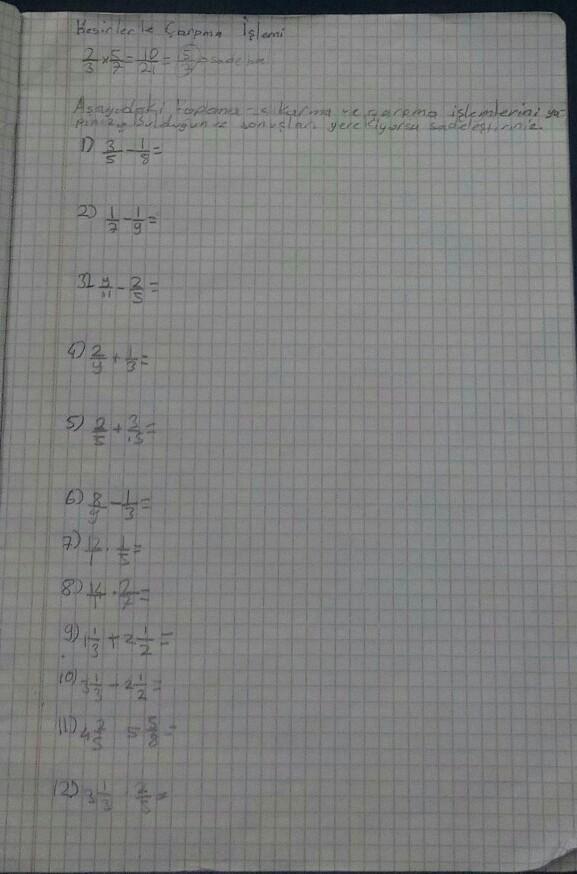 Kesirlerle Çarpma İşlemi
2/3 x 5/7 = 10/21 = 5/7
Aşağıdaki toplama-çıkarma ve çarpma işlemlerini ya-
pınız, bulduğunuz sonuçları gerekiyorsa sadeleştiriniz.
1) 3/5 - 1/8 =
2) 1/7 - 1/9 =
3) /11 - 2/5 =
4) 2/9 + 1/3 =
5) 2/5 + 3/15 =
6) 8/9 - 1/3 =
7) 12/1 . 1/5 =
8) 14/1 . 2/7 =
9) 1 1/3 + 2 1/2 =
10) 3 1/3 - 2 1/2 =
11) 4 2/5 5 5/8 =
12) 3 1/3 . 2/5 =